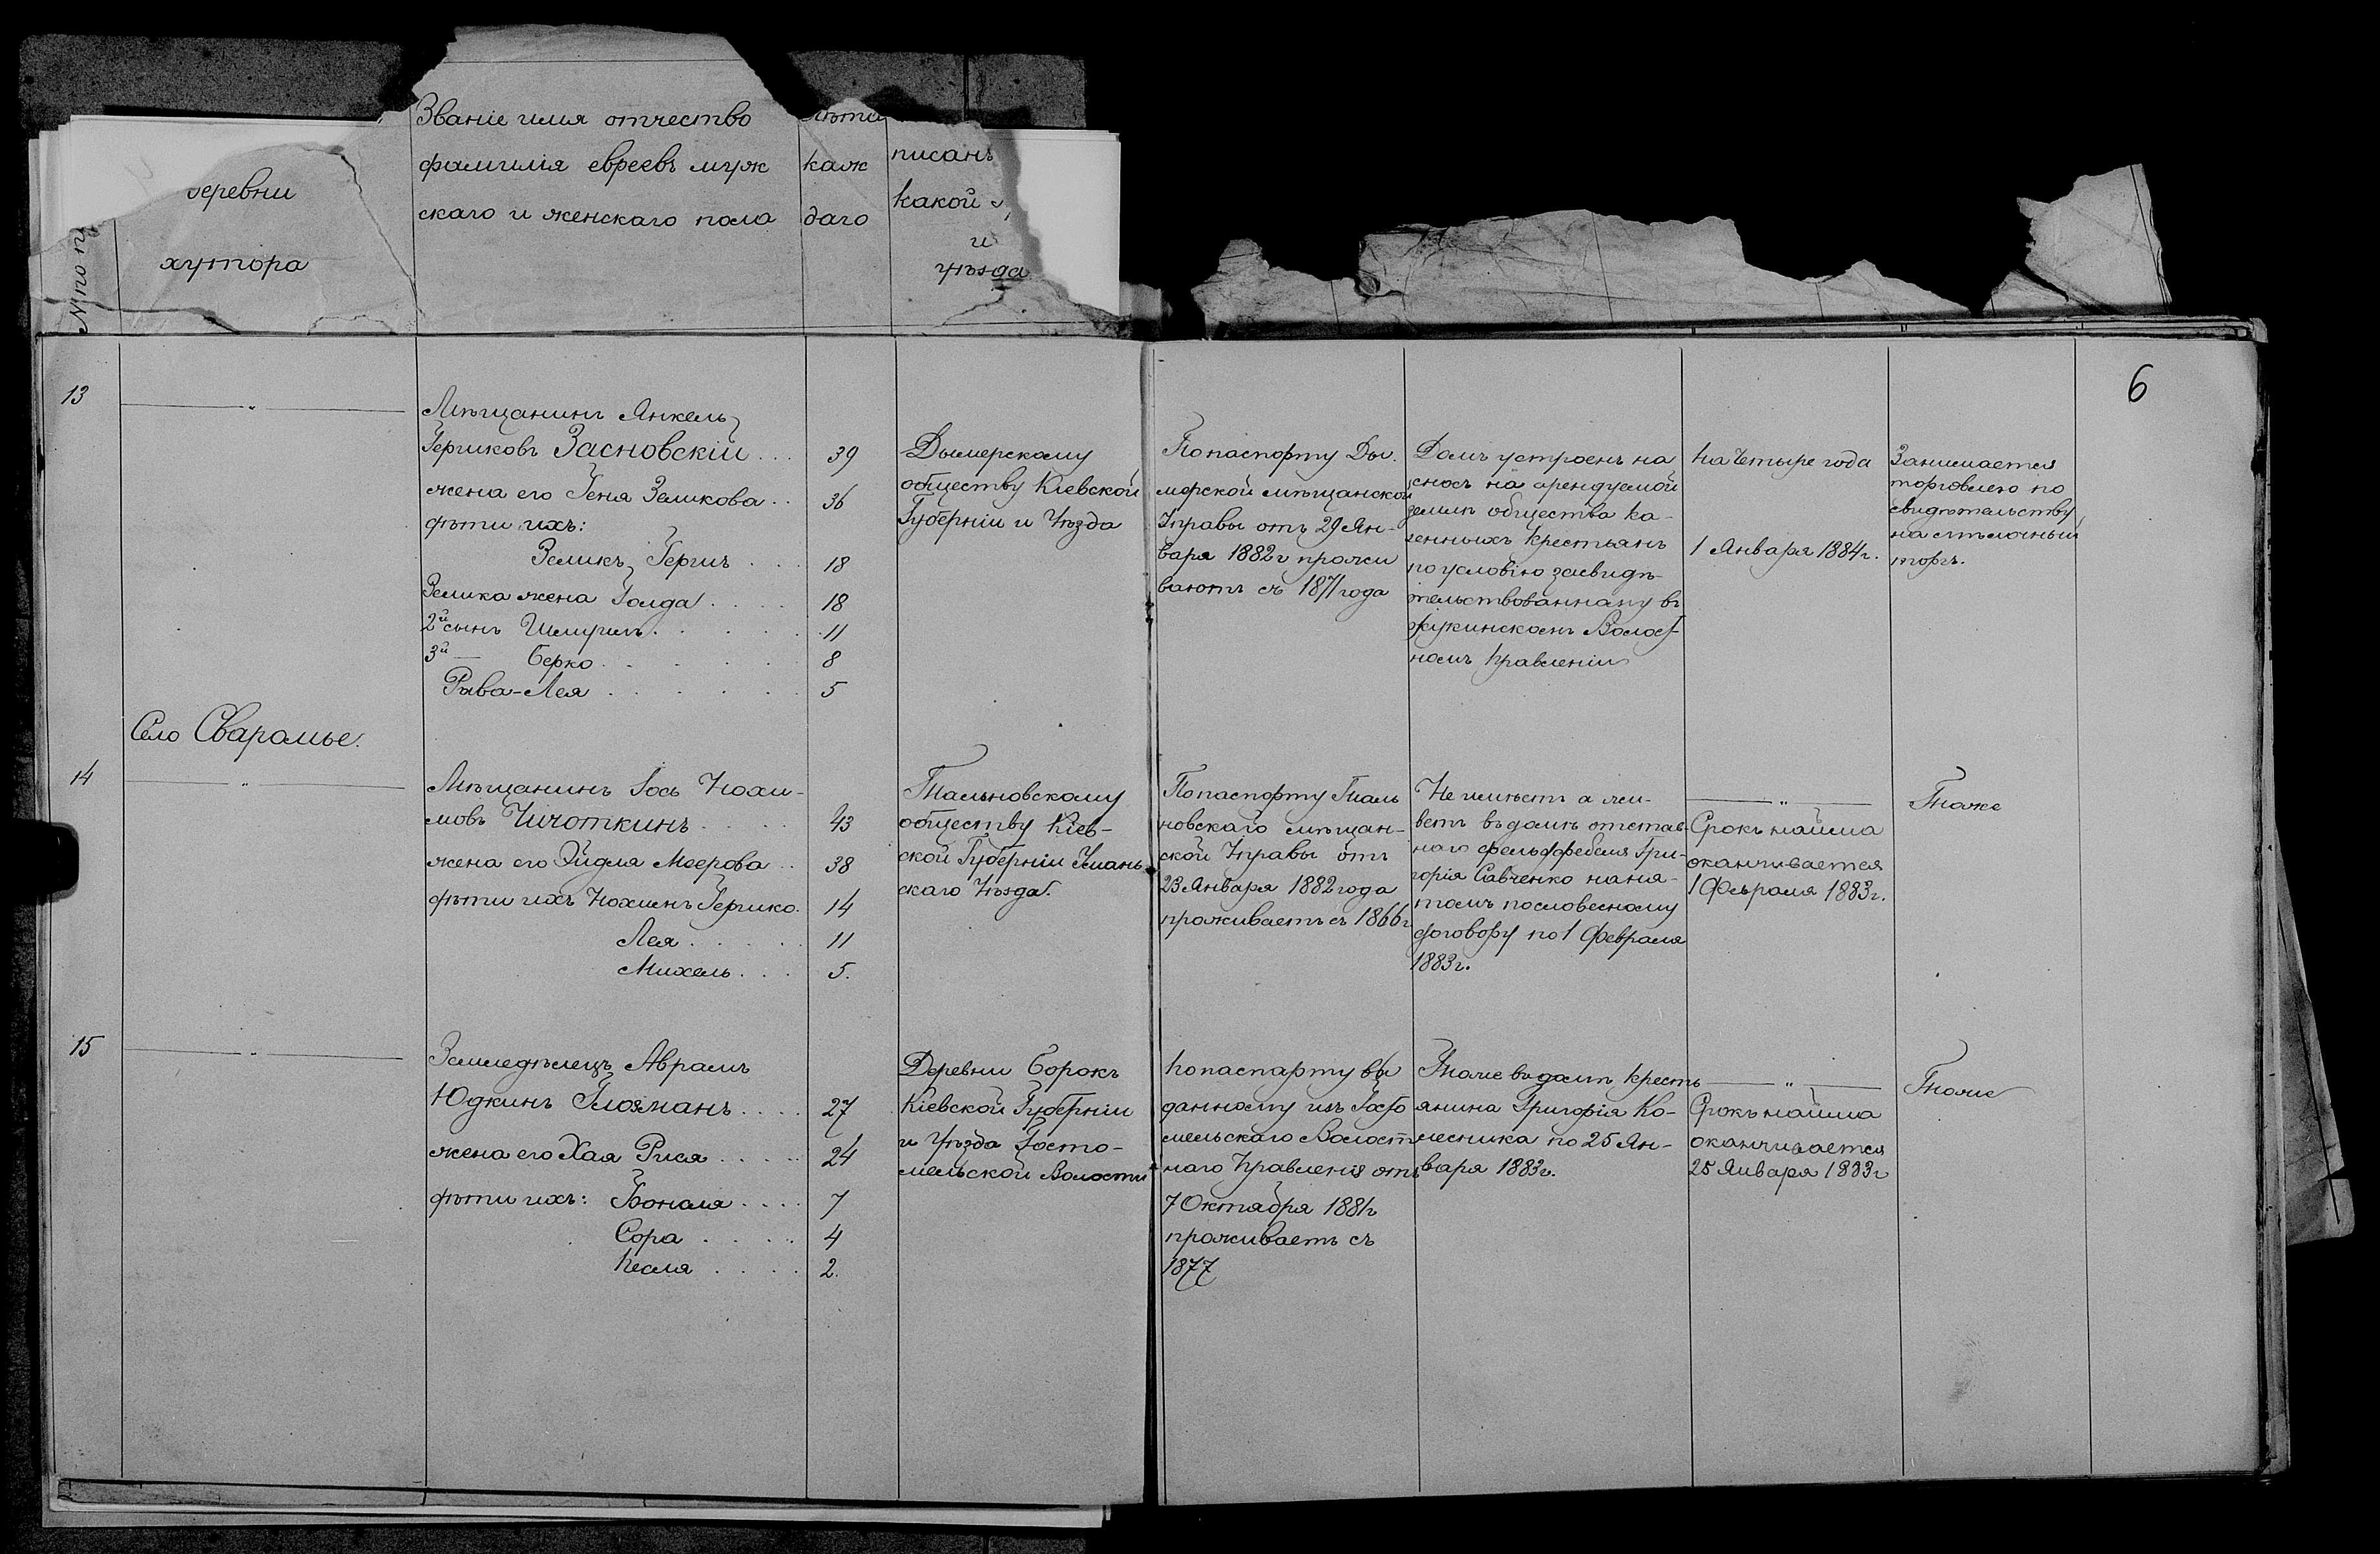 деревни
хутора
№ по п
Званіе имя отчество
фамилія евреевъ муж
скаго и женскаго пола
лѣта
каж
даго
писанъ
какой
и
уѣзда
6
13
Мѣщанинъ Янкель
Гершковъ Засновскій . . . 39
жена его Геня Зеликова . . 36
дѣти ихъ:
Зеликъ Гершъ . . . 18
Зелика жена Голда . . . . 18
2й сынъ Шмуриль . . . . . 11
3й — Берко . . . . . 8
Рива-Лея . . . . . . 5
Дымерскому
обществу Кіевской
Губерніи и Уѣзда
По паспорту Ды-
мерской мѣщанской
Управы отъ 29 Ян-
варя 1882 г прожи
ваютъ съ 1871 года
Домъ устроенъ на
сносъ на арендуемой
землѣ общества ка-
зенныхъ крестьянъ
по условію засвидѣ-
тельствованному въ
Жукинскомъ Волост-
номъ Правленіи
На четыре года
1 Января 1884 г.
Занимается
торговлею по
свидѣтельству
на мѣлочный
торгъ.
Село Сваромье.
14
Мѣщанинъ Іось Нохи-
мовъ Чичоткинъ . . . . 43
жена его Эйдля Меерова . . 38
дѣти ихъ Нохменъ Гершко. 14
Лея . . . . . 11
Михель . . . 5.
Тальновскому
обществу Кіев-
ской Губерніи Умань
скаго Уѣзда.
По паспорту Таль
новскаго мѣщан-
ской Управы отъ
23 Января 1882 года
проживаетъ съ 1866 г
Не имѣетъ а жи-
ветъ въ домѣ отстав-
наго фельдфебеля Гри-
горія Савченко наня-
томъ по словесному
договору по 1 Февраля
1883 г.
— „ —
Срокъ найма
оканчивается
1 Февраля 1883 г.
Тоже
15
Земледѣлецъ Аврамъ
Юдкинъ Глозманъ . . . . 27
жена его Хая Рися . . . . . 24
дѣти ихъ: . . . . 7
Сора . . . . . 4
Песля . . . . 2.
Деревни Борокъ
Кіевской Губерніи
и Уѣзда Госто-
мельской Волости
По паспарту вы
данному изъ Госто
мельскаго Волост
наго Правленія отъ
7 Октября 1881 г
проживаетъ съ
1877
Тоже въ домѣ кресть
янина Григорія Ко-
лесника по 25 Ян-
варя 1883 г.
— „ —
Срокъ найма
оканчивается
25 Января 1883 г
Тоже